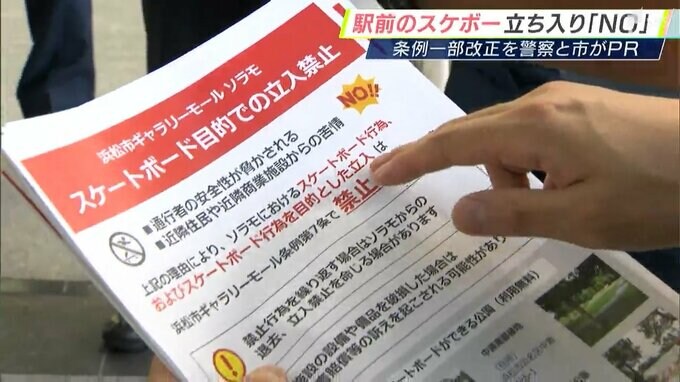 駅前のスケボー 立ち入り「NO」
条例一部改正を警察と市がPR
浜松市ギャラリーモール ソラモ
スケートボード目的での立入禁止
NO!!
■通行者の安全性が脅かされる
■近隣住民や近隣商業施設からの苦情
上記の理由により、ソラモにおけるスケートボード行為、
およびスケートボード行為を目的とした立入は
浜松市ギャラリーモール条例第7条で 禁止
禁止行為を繰り返す場合はソラモからの
退去、立入禁止を命じる場合があります
施設の設備や備品を破損した場合は
賠償等の訴えを起こされる可能性があり
ボードができる公園（利用無料）